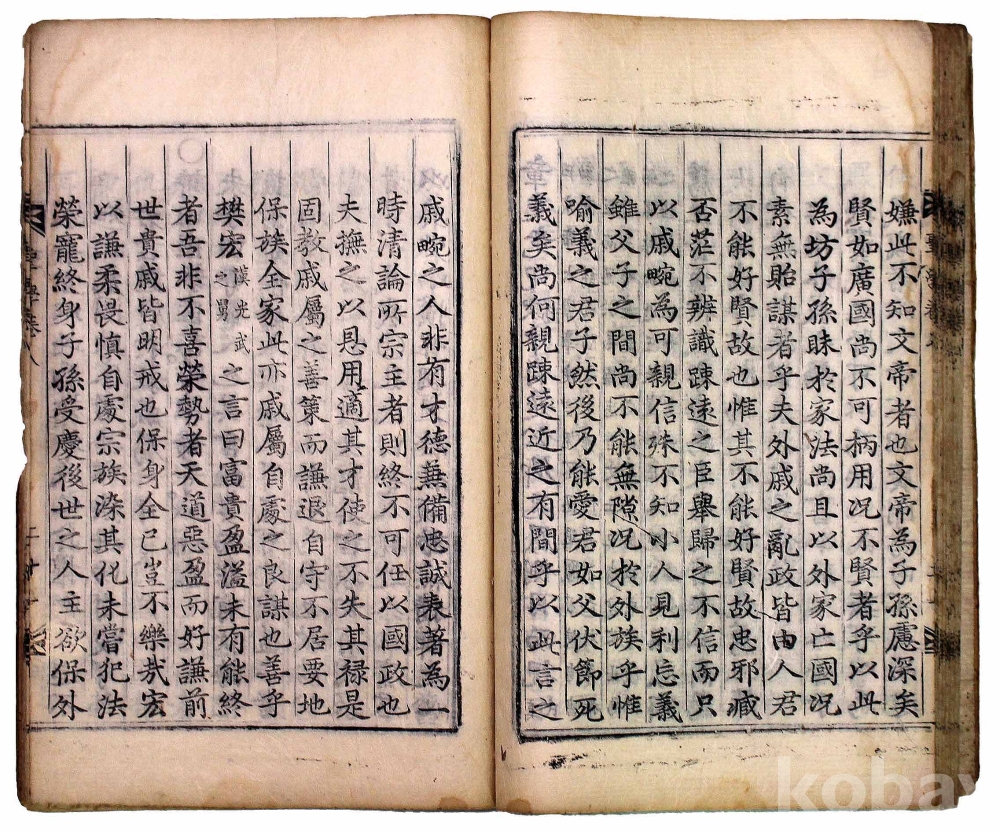 嫌此不知文帝者也文帝為子孫慮深矣
賢如廣國尚不可柄用况不賢者乎以此
為坊子孫昧於家法尚且以外家亡國况
素無貽謀者乎夫外戚之亂政皆由人君
不能好賢故也惟其不能好賢故忠邪臧
否茫不辨識踈遠之臣舉歸之不信而只
以戚畹為可親信殊不知小人見利忘義
雖父子之間尚不能無隙况於外族乎惟
喻義之君子然後乃能愛君如父伏節死
義矣尚何親踈遠近之有間乎以此言之
戚畹之人非有才德兼備忠誠表著為一
時清論所宗主者則終不可任以國政也
夫撫之以恩用適其才使之不失其禄是
固教戚屬之善策而謙退自守不居要地
保族全家此亦戚屬自處之良謀也善乎
樊宏漢光武之舅之言曰富貴盈溢未有能終
者吾非不喜榮勢者天道惡盈而好謙前
世貴戚皆明戒也保身全己豈不樂哉宏
以謙柔畏慎自處宗族染其化未嘗犯法
榮寵終身子孫受慶後世之人主欲保外
聖學卷八
kobay